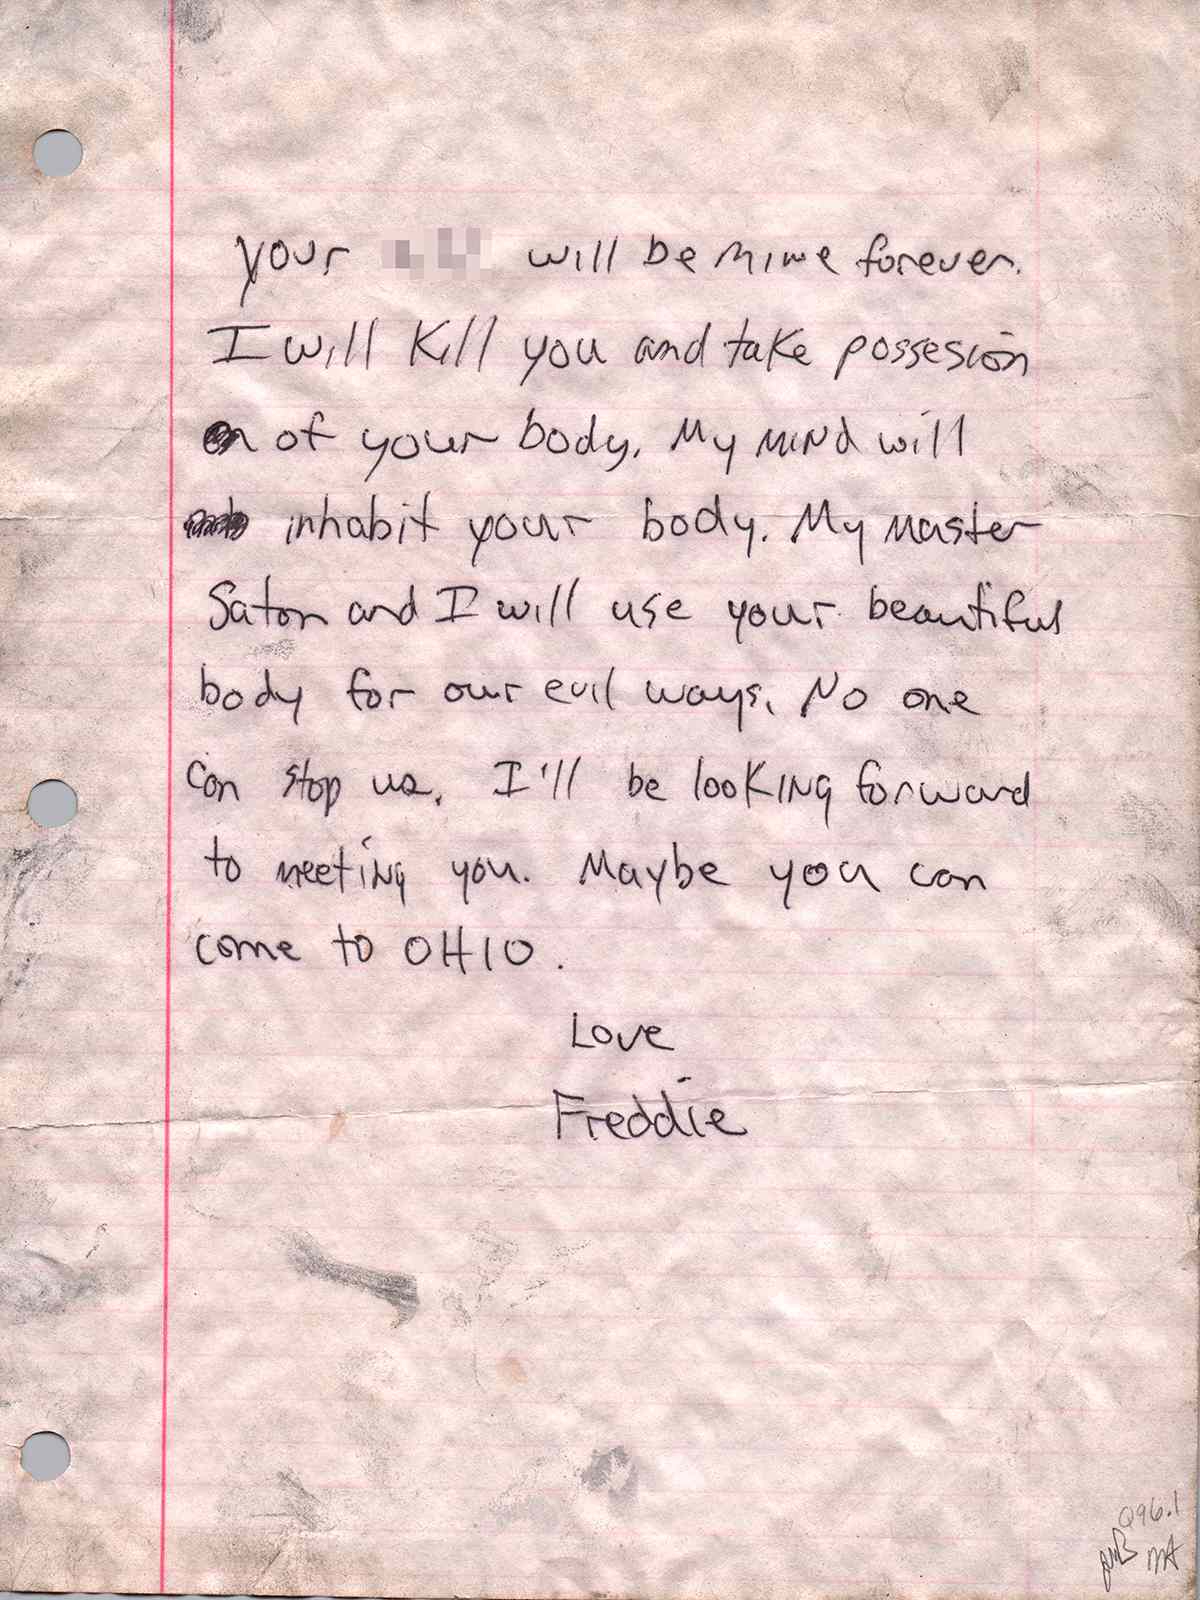 your will be mine forever.
I will Kill you and take possesion
of your body. My mind will
inhabit your body. My master
Saton and I will use your beautiful
body for our evil ways. No one
can stop us. I'll be looking forward
to meeting you. Maybe you can
come to OHIO.
Love
Freddie
Q96.1
MA